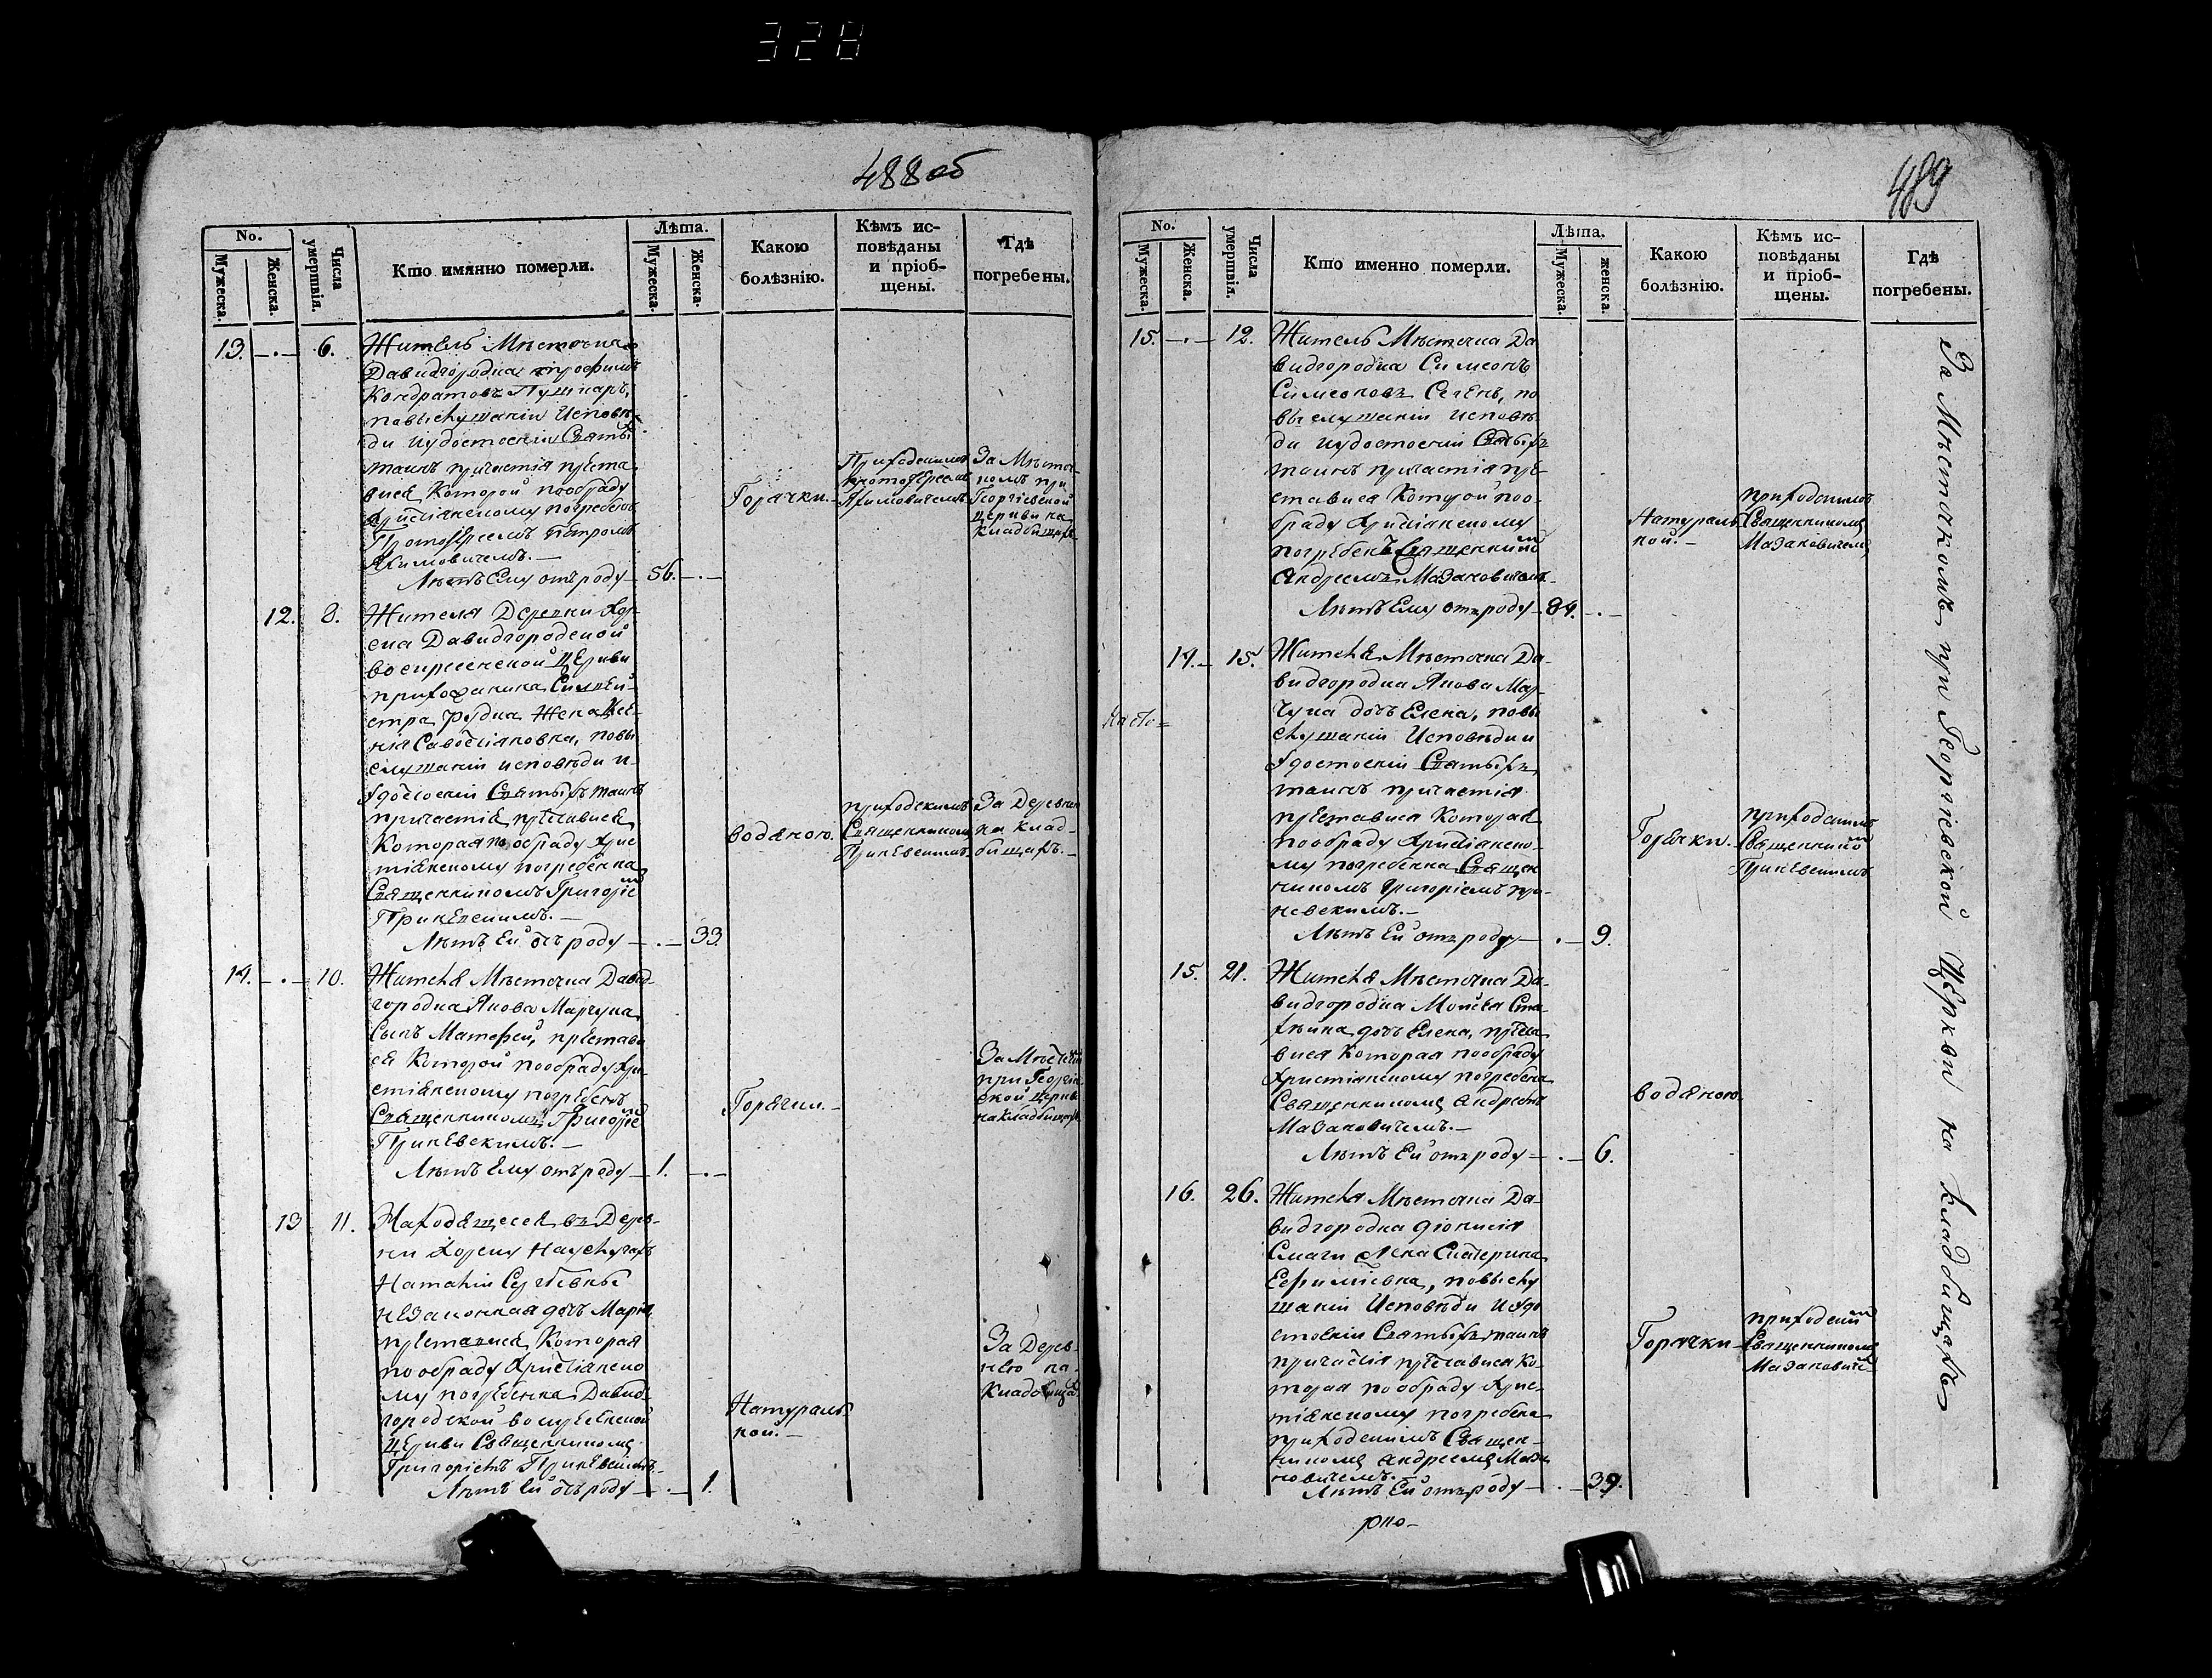 328
488об
No.
Мужеска.
Женска.
Числа умертвія.
Кто имянно померли.
Лѣта.
Мужеска.
Женска.
Какою болѣзнію.
Кѣмъ исповѣданы и пріобщены.
Гдѣ погребены.
13. 6.
Житель Мѣстечка
Давидгородка Трофимъ
Кондратовъ Пушкаръ,
повыслушаніи Исповѣ-
ди иудостоеніи Святы
таинъ причастія преста
вися Которой пообряду
Христіянскому погребенъ
Протоіереемъ Петромъ
Якимовичемъ.—
Лѣтъ Ему отъроду — 56.
Горячки.—
Приходскимъ
протоіереемъ
Якимовичемъ
За Мѣстеч-
комъ при
Георгіевской
церкви на
кладбищахъ
12. 8.
Жителя Деревни Хор-
ска Давидгородской
воскресенской Церкви
прихожанина Силвей-
стра Рудка Жена Ксе-
нія Савостіяновна, повы
слушаніи исповѣди и-
удостоеніи Святыхъ таинъ
причастія преставися
Которая по обряду Хрис
тіянскому погребенна
Священникомъ Григоріе
Прикевскимъ.—
Лѣтъ Ей отъ роду — 33.
водяною.
приходскимъ
Священникомъ
Прикевскимъ
За Деревнею
на клад-
бищахъ.—
14. 10.
Жителя Мѣстечка Давид-
городка Якова Марчука
Сынъ Матѳей, престави
ся Которой пообряду Хри-
стіянскому погребенъ
Священникомъ Григоріе
Прикевскимъ.—
Лѣтъ Ему отъроду — 1.
Горячки.—
За Мѣстечко
при Георгіе
ской церкви
на кладбищахъ
13 11.
Находящесея въ Дерев-
ни Хорску Науслугахъ
Наталіи Сергѣевны
незаконная дочь Марія
преставися, Которая
по обряду Христіянско
му погребенна Давид-
городской воскресенской
Церкви Священникомъ
Григоріемъ Прикевскимъ.
Лѣтъ Ей отъроду — 1.
Натураль
ной.—
За Дерев-
нею на
Кладбищахъ
489
No.
Мужеска.
Женска.
Числа умертвія.
Кто именно померли.
Лѣта.
Мужеска.
женска.
Какою болѣзнію.
Кѣмъ исповѣданы и пріобщены.
Гдѣ погребены.
15. 12.
Житель Мѣстечка Да
видгородка Симеонъ
Симеоновъ Сечень, по
выслушаніи исповѣ
ди иудостоеніи Святыхъ
таинъ причастія пре-
ставися Которой поо-
бряду Христіянскому
погребенъ Священнико
Андреемъ Мазановичемъ.
Лѣтъ Ему отъроду — 84.
Натураль
ной.—
приходскимъ
Священникомъ
Мазановичемъ
14. 15.
Жителя Мѣстечка Да-
видгородка Якова Мар-
чука дочь Елена, повы
слушаніи Исповѣди и
удостоеніи Святыхъ
таинъ причастія
преставися Которая
пообряду Христіянско-
му погребенна Священ
никомъ Григоріемъ при-
кевскимъ.—
Лѣтъ Ей отъ роду — 9.
Горячки.
приходскимъ
Священнико
Прикевскимъ
15. 21.
Жителя Мѣстечка Да-
видгородка Мойсея Ста-
дочь Елена, преста
вися Которая пообряду
Христіянскому погребена
Священникомъ Андреемъ
Мазановичемъ.—
Лѣтъ Ей отъроду — 6.
водяною.
16. 26.
Жителя Мѣстечка Да-
видгородка Діонисія
Смаги Жена Екатерина
Ефиміевна, повыслу
шаніи Исповѣди Иудо
стоеніи Святыхъ таинъ
причастія преставися Ко-
торая пообряду Хрис-
тіянскому погребена
приходскимъ Священ-
никомъ Андреемъ Маза
новичемъ.—
Лѣтъ Ей отъроду — 39.
Горячки
приходски
Священникомъ
Мазанович
За Мѣстечкомъ при Георгіевской Церкви на кладбищахъ